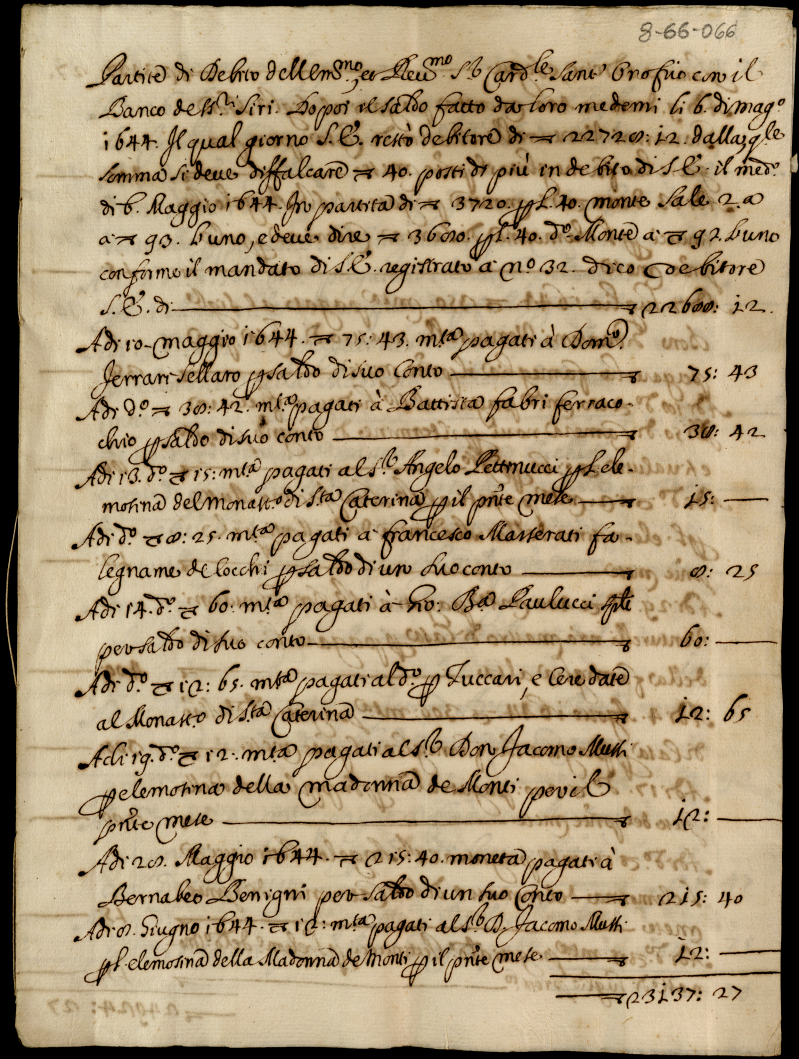 8-66-066
Partite di Debito dell Em.mo et Reu.mo S.r Card.le Sant' Onofrio con il
Banco de ss.ri Siri. Dopoi il saldo fatto da loro medemi li 6. di mag.o
1644. Il qual giorno S. E. restò debitore di 22728: 12. dalla q.le
somma si deue diffalcare 40. posti di più in debito di S. E. il med.o
di 6. Maggio 1644. In partita di 3720. p L. 40. monte Sale 2.a
a 93. l'uno, e deue dire 3680. p L. 40. d.o Monte a 92. l'uno
conforme il mandato di S. E. registrato a n.o 32. dico Debitore
S. E. di 22688: 12.
Adi 10 maggio 1644. 75: 43. m.ta pagati à Dom.co
Ferrari sellaro p saldo di suo Conto 75: 43
Adi d.o 38: 42. m.ta pagati à Battista fabri ferraco-
chio p saldo di suo conto 38: 42
Adi 13. d.o 15: m.ta pagati al S.r Angelo Pettinucci p L'ele-
mosina del Monast.o di S.ta Caterina p il pnte mese 15:
Adi d.o 8: 25. m.ta pagati a francesco Masserati fa-
legname de Cocchi p saldo di un suo conto 8: 25
Adi 14. d.o 60: m.ta pagati à Gio: B.a Paulucci
per saldo di suo conto 60:
Adi d.o 12: 65. m.ta pagati al d.o p Zuccari, e Cere date
al Monast.o di S.ta Caterina 12: 65
Adi 19. d.o 12. m.ta pagati al S.r Don Jacomo Mutti
p elemosina della madonna de Monti per il
pnte mese 12:
Adi 28. Maggio 1644. 215: 40. moneta pagati à
Bernabeo Benigni per saldo di un suo Conto 215: 40
Adi 8. Giugno 1644. 12: m.ta pagati al S.r D. Jacomo Mutti
p L'elemosina della Madonna de Monti p il pnte mese 12:
23137: 27